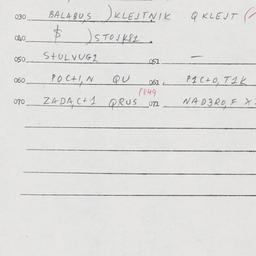 030 BALABUS )KLEJTNIK QKLEJT
040 $ )STOJKB1
050 S+ULVUG1 051 —
060 POC+I,N QU 061 P1C+O,T1K
1849
070 ZADA,C+1 QRUS 071 NAD3RO,F X